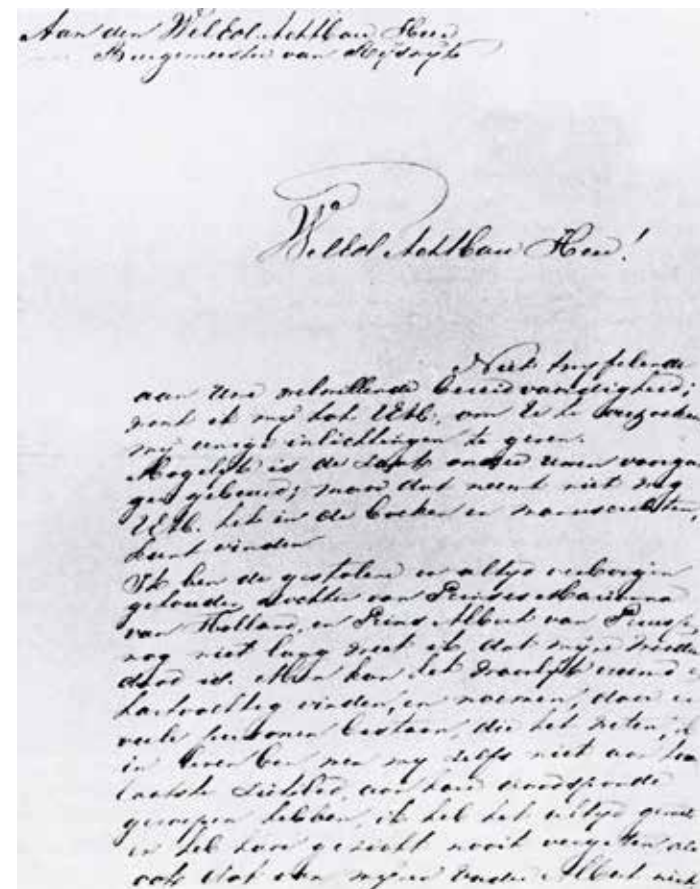 Aan den WelEd. Achtbaren Heer
Burgemeester van Rijswijk
WelEd. Achtbare Heer!
Niet twyfelende
aan Uwe welwillende bereidvaardigheid,
wend ik my tot UEA, om U te verzoeken
my eenige inlichtingen te geven.
Mogelyk is de zaak onder uwen voorgan
ger gebeurd; maar dat neemt niet weg
UEA. het in de boeken en manuscripten,
kunt vinden
Ik ben de gestolene en altyd verborgen
gehouden dochter van Prinses Marianna
van Holland, en Prins Albert van Pruisse
nog niet lang weet ik, dat myne moeder
dood is. Men kan het vreemd
vinden, en noemen, daar er
vele personen bestaan, die het weten,
in leven ben men my zelfs niet aan haar
laatste ziekbed, aan haar
geroepen hebben, ik heb het altyd
en heb haar gezicht nooit vergeten
ook dat van mynen vader Albert niet